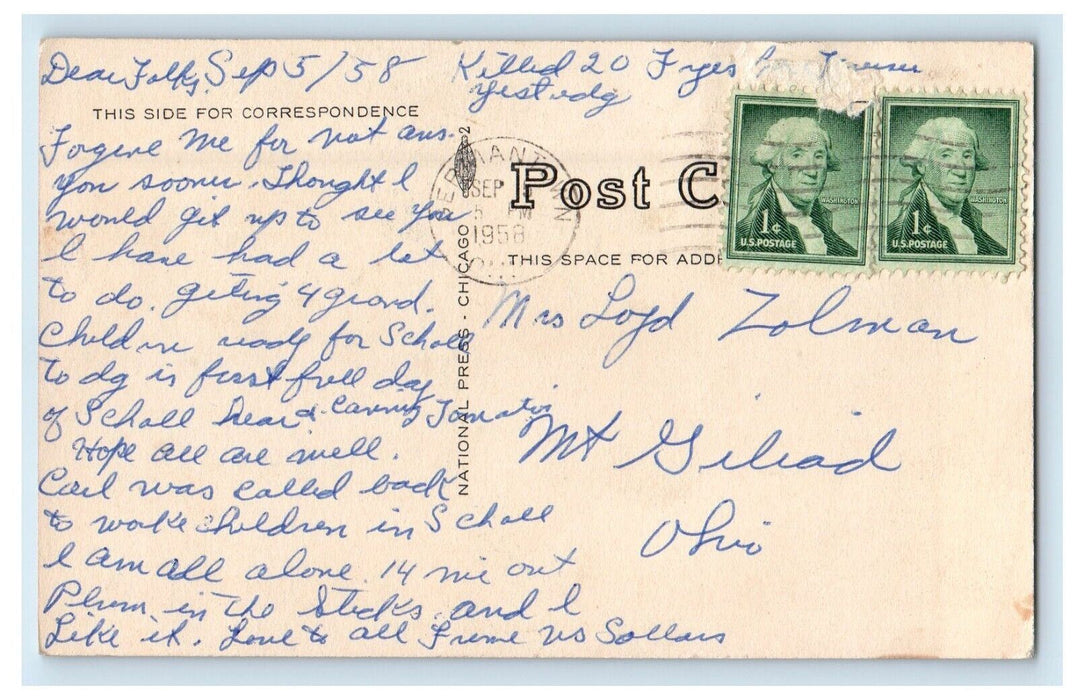 Dear Folks, Sep 5/58 Killed 20 Fryes for
yestdg
THIS SIDE FOR CORRESPONDENCE
Forgive me for not ans.
you sooner. Thought I
would git up to see you
I have had a lot
to do. geting 4 grand.
Children ready for Scholl
To dg is first full day
of Scholl here & Caning Tomatis
Hope all are well.
Carl was called back
to worke children in Scholl
I am all alone. 14 mi out
Plum in the Sticks and I
Like it. Love to all
NATIONAL PRESS - CHICAGO 2
GERMANTOWN
SEP
5 PM
1958
Post C
THIS SPACE FOR ADDRE
1¢
U.S. POSTAGE
WASHINGTON
1¢
U.S. POSTAGE
WASHINGTON
Mrs Loyd Zolman
Mt Gilead
Ohio